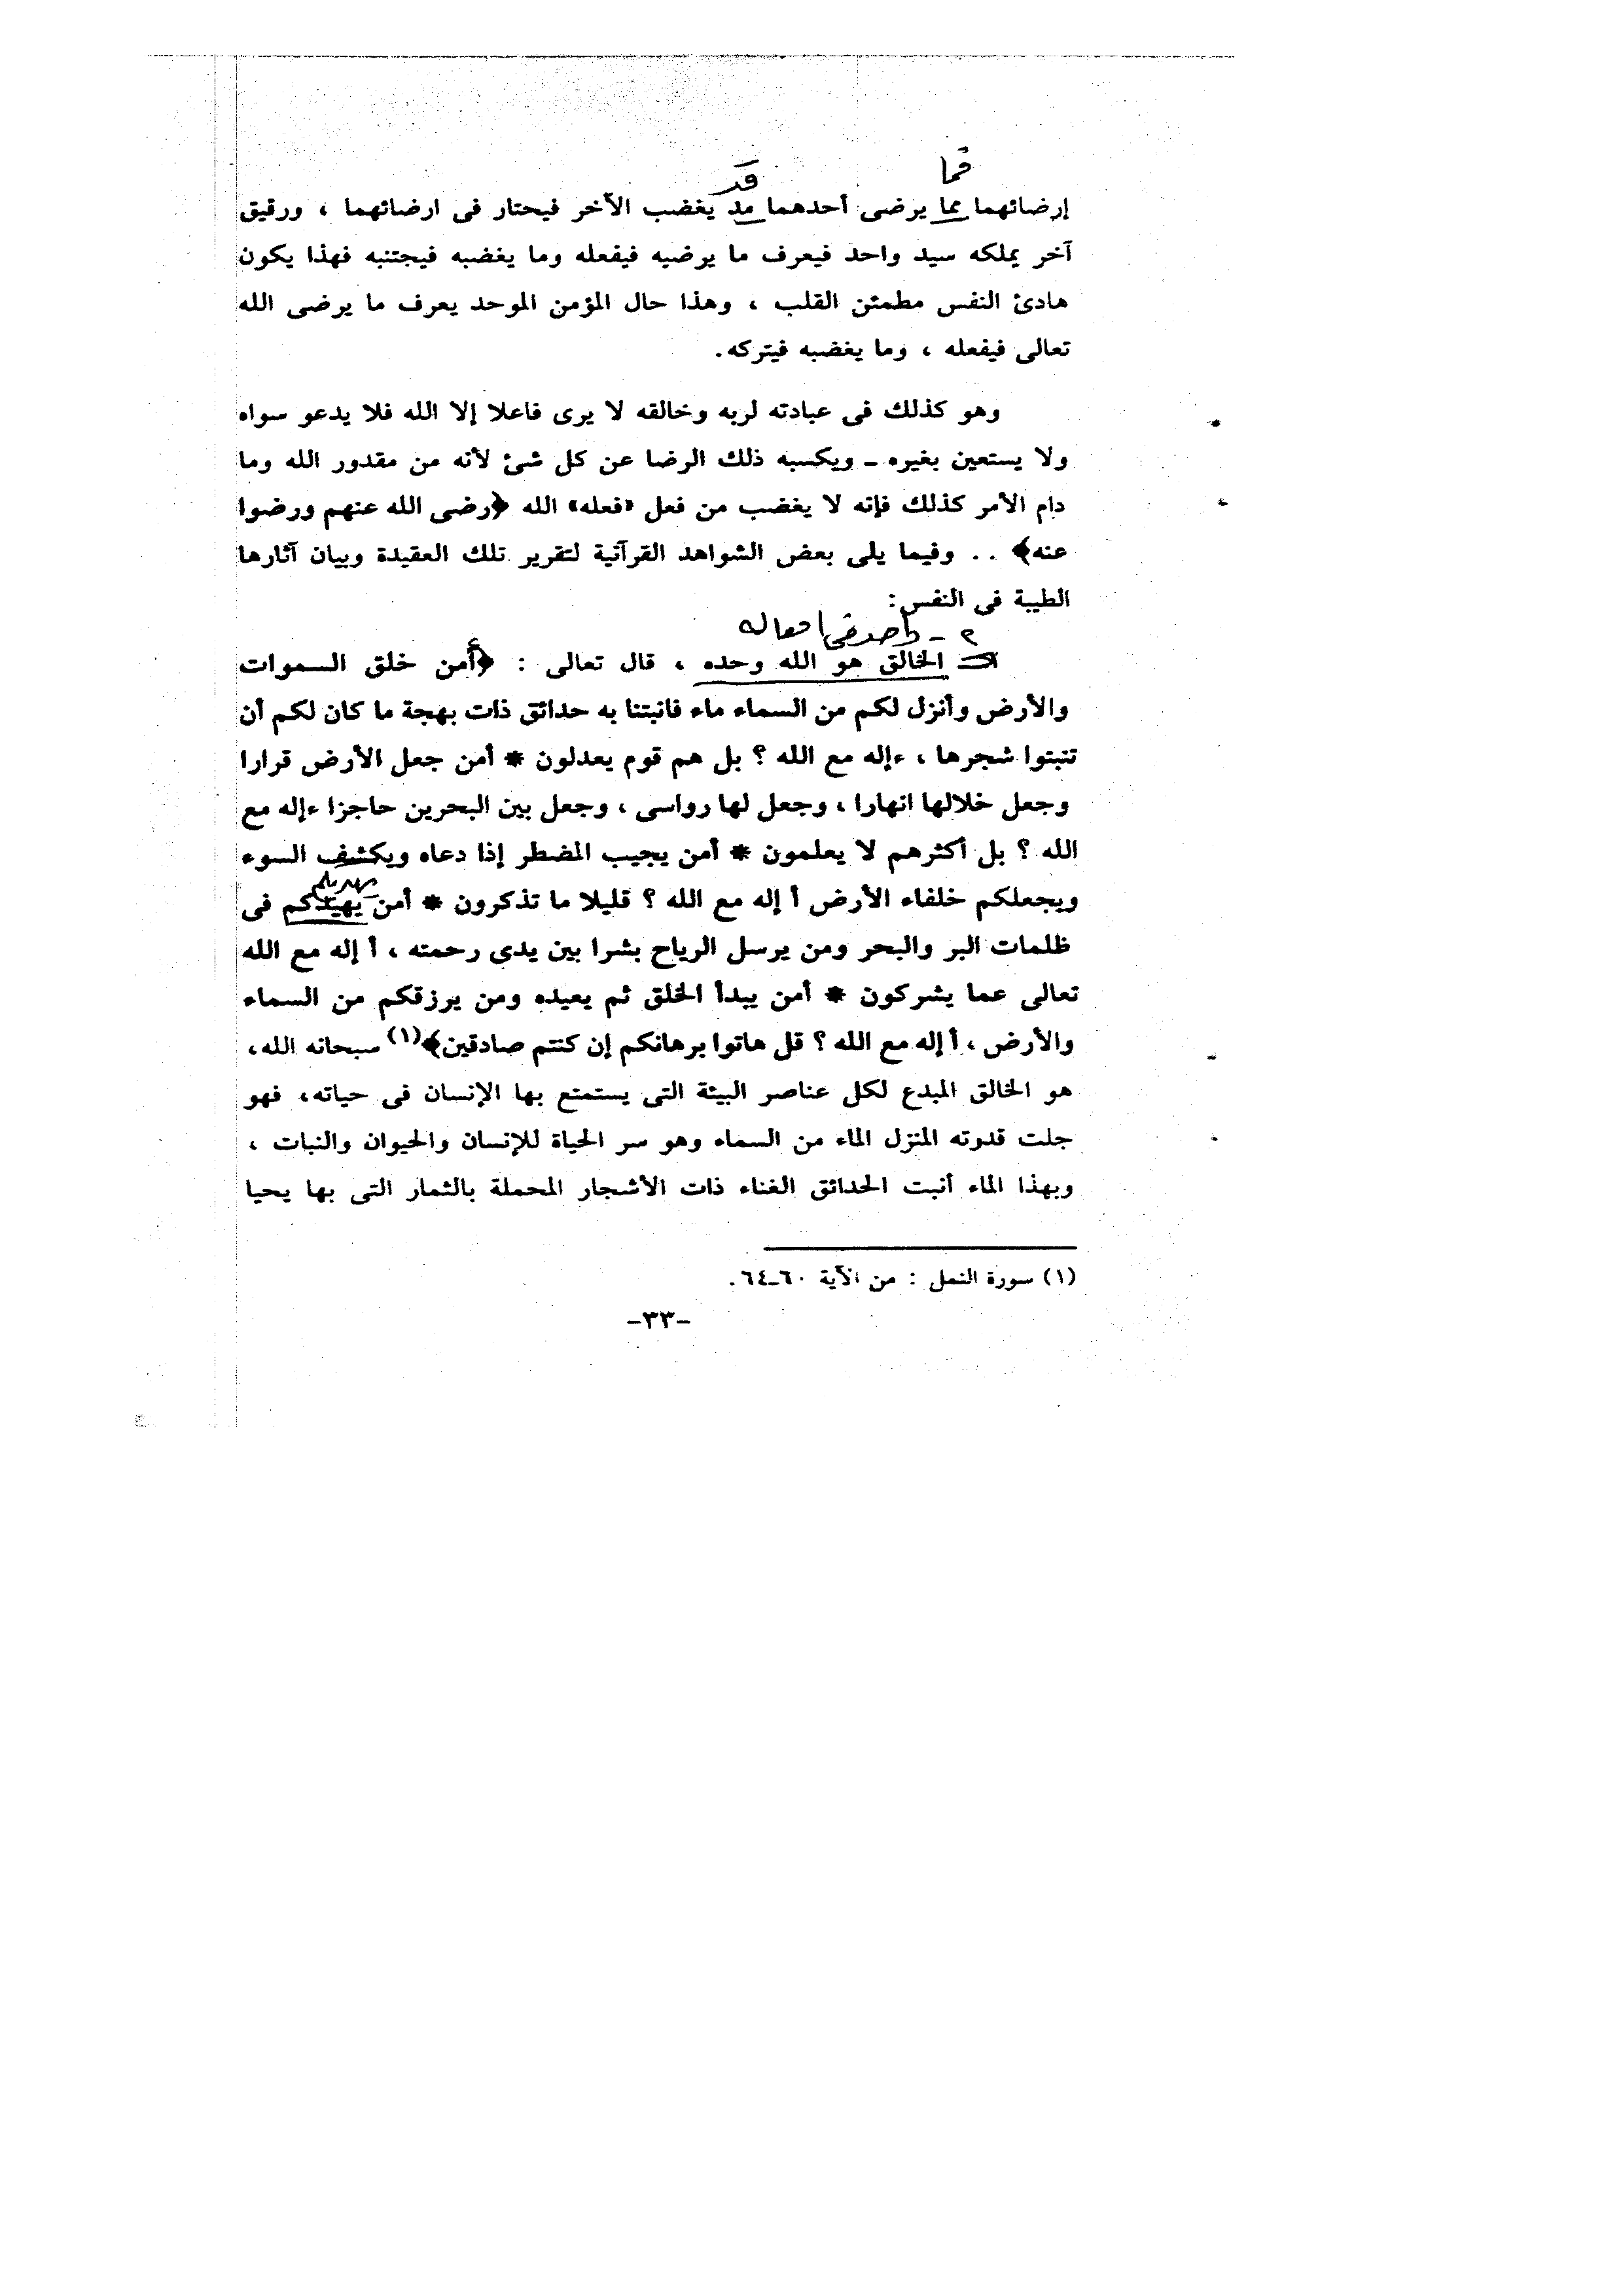 فما
قد
إرضائهما مما يرضى أحدهما مد يغضب الآخر فيحتار فى ارضائهما ، ورقيق
آخر يملكه سيد واحد فيعرف ما يرضيه فيفعله وما يغضبه فيجتنبه فهذا يكون
هادئ النفس مطمئن القلب ، وهذا حال المؤمن الموحد يعرف ما يرضى الله
تعالى فيفعله ، وما يغضبه فيتركه.
وهو كذلك فى عبادته لربه وخالقه لا يرى فاعلا إلا الله فلا يدعو سواه
ولا يستعين بغيره ـ ويكسبه ذلك الرضا عن كل شئ لأنه من مقدور الله وما
دام الأمر كذلك فإنه لا يغضب من فعل «فعله» الله ﴿رضى الله عنهم ورضوا
عنه﴾ . . وفيما يلى بعض الشواهد القرآنية لتقرير تلك العقيدة وبيان آثارها
الطيبة فى النفس:
٢ - واحد فى افعاله
الخالق هو الله وحده ، قال تعالى : ﴿أمن خلق السموات
والأرض وأنزل لكم من السماء ماء فانبتنا به حدائق ذات بهجة ما كان لكم أن
تنبتوا شجرها ، ءإله مع الله ؟ بل هم قوم يعدلون * أمن جعل الأرض قرارا
وجعل خلالها انهارا ، وجعل لها رواسى ، وجعل بين البحرين حاجزا ءإله مع
الله ؟ بل أكثرهم لا يعلمون * أمن يجيب المضطر إذا دعاه ويكشف السوء
يهديكم
ويجعلكم خلفاء الأرض أ إله مع الله ؟ قليلا ما تذكرون * أمن يهيدكم فى
ظلمات البر والبحر ومن يرسل الرياح بشرا بين يدى رحمته ، أ إله مع الله
تعالى عما يشركون * أمن يبدأ الخلق ثم يعيده ومن يرزقكم من السماء
والأرض ، أ إله مع الله ؟ قل هاتوا برهانكم إن كنتم صادقين﴾(١) سبحانه الله،
هو الخالق المبدع لكل عناصر البيئة التى يستمتع بها الإنسان فى حياته، فهو
جلت قدوته المنزل الماء من السماء وهو سر الحياة للإنسان والحيوان والنبات ،
وبهذا الماء أنبت الحدائق الغناء ذات الأشجار المحملة بالثمار التى بها يحيا
(١) سورة النمل : من الآية ٦٠ـ٦٤.
-٣٣-